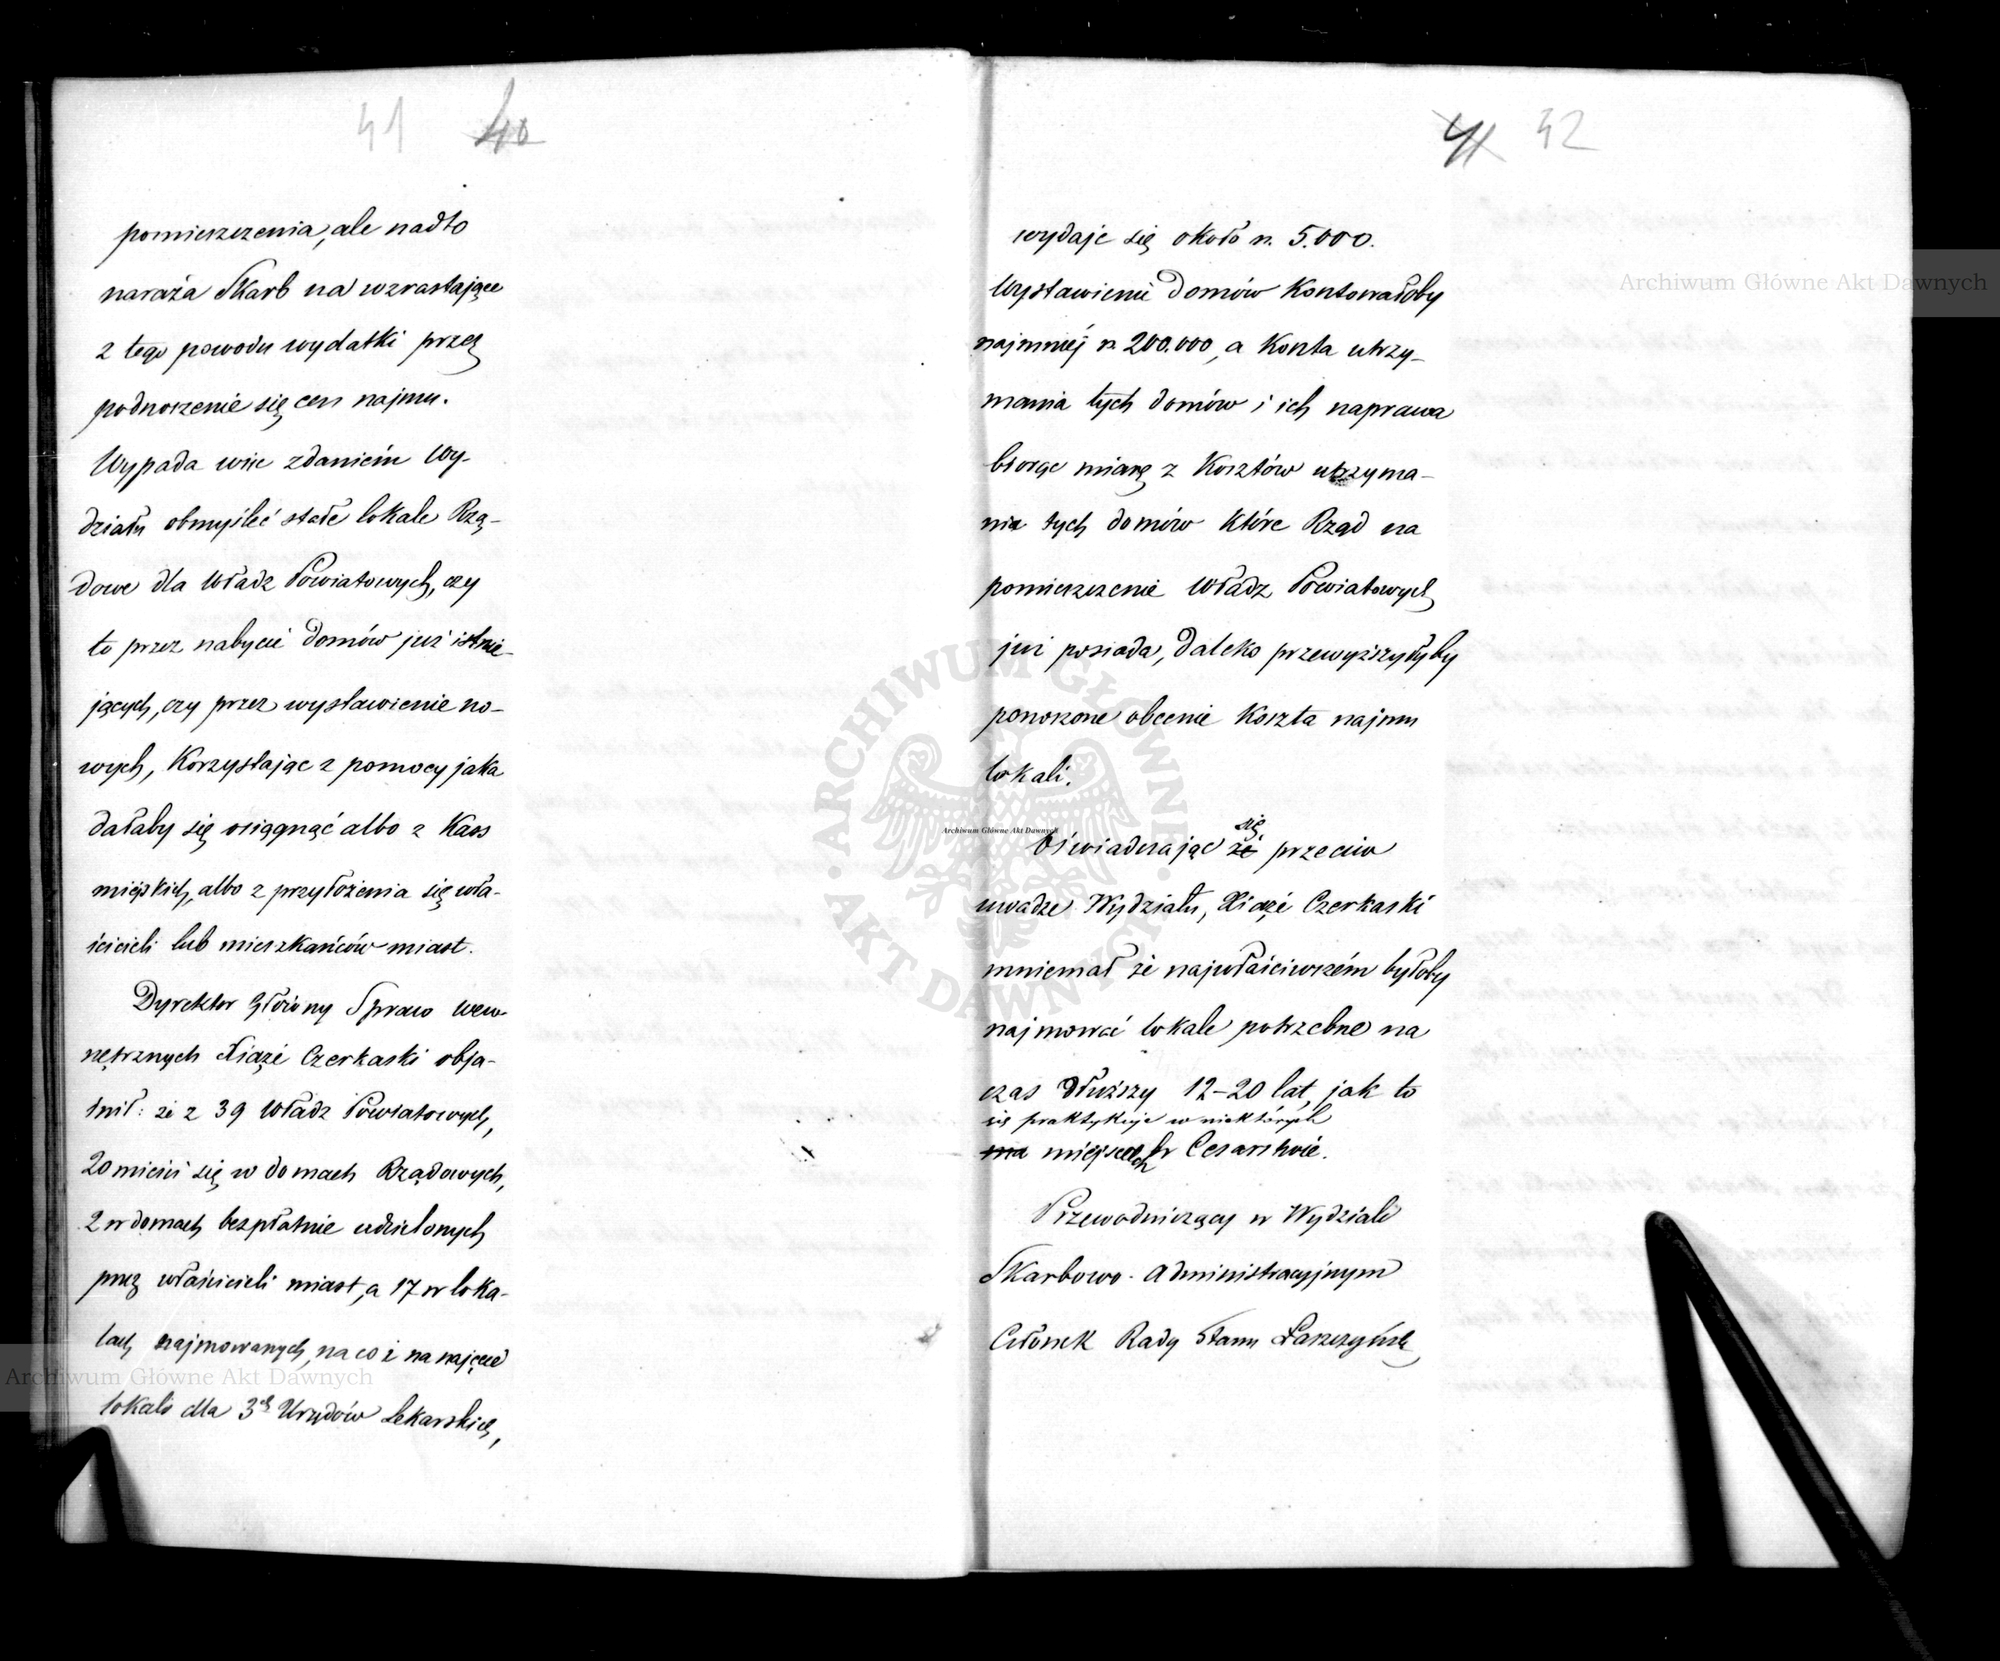 41 40
pomieszczenia, ale nadto
naraża Skarb na wzrastające
z tego powodu wydatki przez
podnoszenie się cen najmu.
Wypada więc zdaniem Wy-
działu obmyśleć stałe lokale Rzą-
dowe dla Władz Powiatowych, czy
to przez nabycie domów już istnie-
jących, czy przez wystawienie no-
wych, Korzystając z pomocy jaka
dałaby się osiągnąć albo z Kass
miejskich, albo z przyłożenia się wła-
ścicieli lub mieszkańców miast.
Dyrektor Główny Spraw wew-
nętrznych Xiąże Czerkaski obja-
śnił: że z 39 Władz Powiatowych,
20 mieści się w domach Rządowych,
2 w domach bezpłatnie udzielonych
przez właścicieli miast, a 17 w loka-
lach najmowanych, na co i na najęcie
lokali dla 3ch Urzędów Lekarskich,
41 42
wydaje się około rs. 5.000.
Wystawienie domów Kosztowałoby
najmniéj rs. 200.000, a Koszta utrzy-
mania tych domów i ich naprawa
biorąc miarę z Kosztów utrzyma-
nia tych domów które Rząd na
pomieszczenie Władz Powiatowych
już posiada, daleko przewyższyłyby
ponoszone obecnie Koszta najmu
lokali.
się
Oświadczając że przeciw
uwadze Wydziału, Xiąże Czerkaski
mniemał że najwłaściwszém byłoby
najmować lokale potrzebne na
czas dłuższy 12-20 lat, jak to
się praktykuje w niektórych
ma miejscach w Cesarstwie.
Przewodniczący w Wydziale
Skarbowo-Administracyjnym
Członek Rady Stanu Łaszczyński
Archiwum Główne Akt Dawnych
Archiwum Główne Akt Dawnych
Archiwum Główne Akt Dawnych
ARCHIWUM GŁÓWNE AKT DAWNYCH